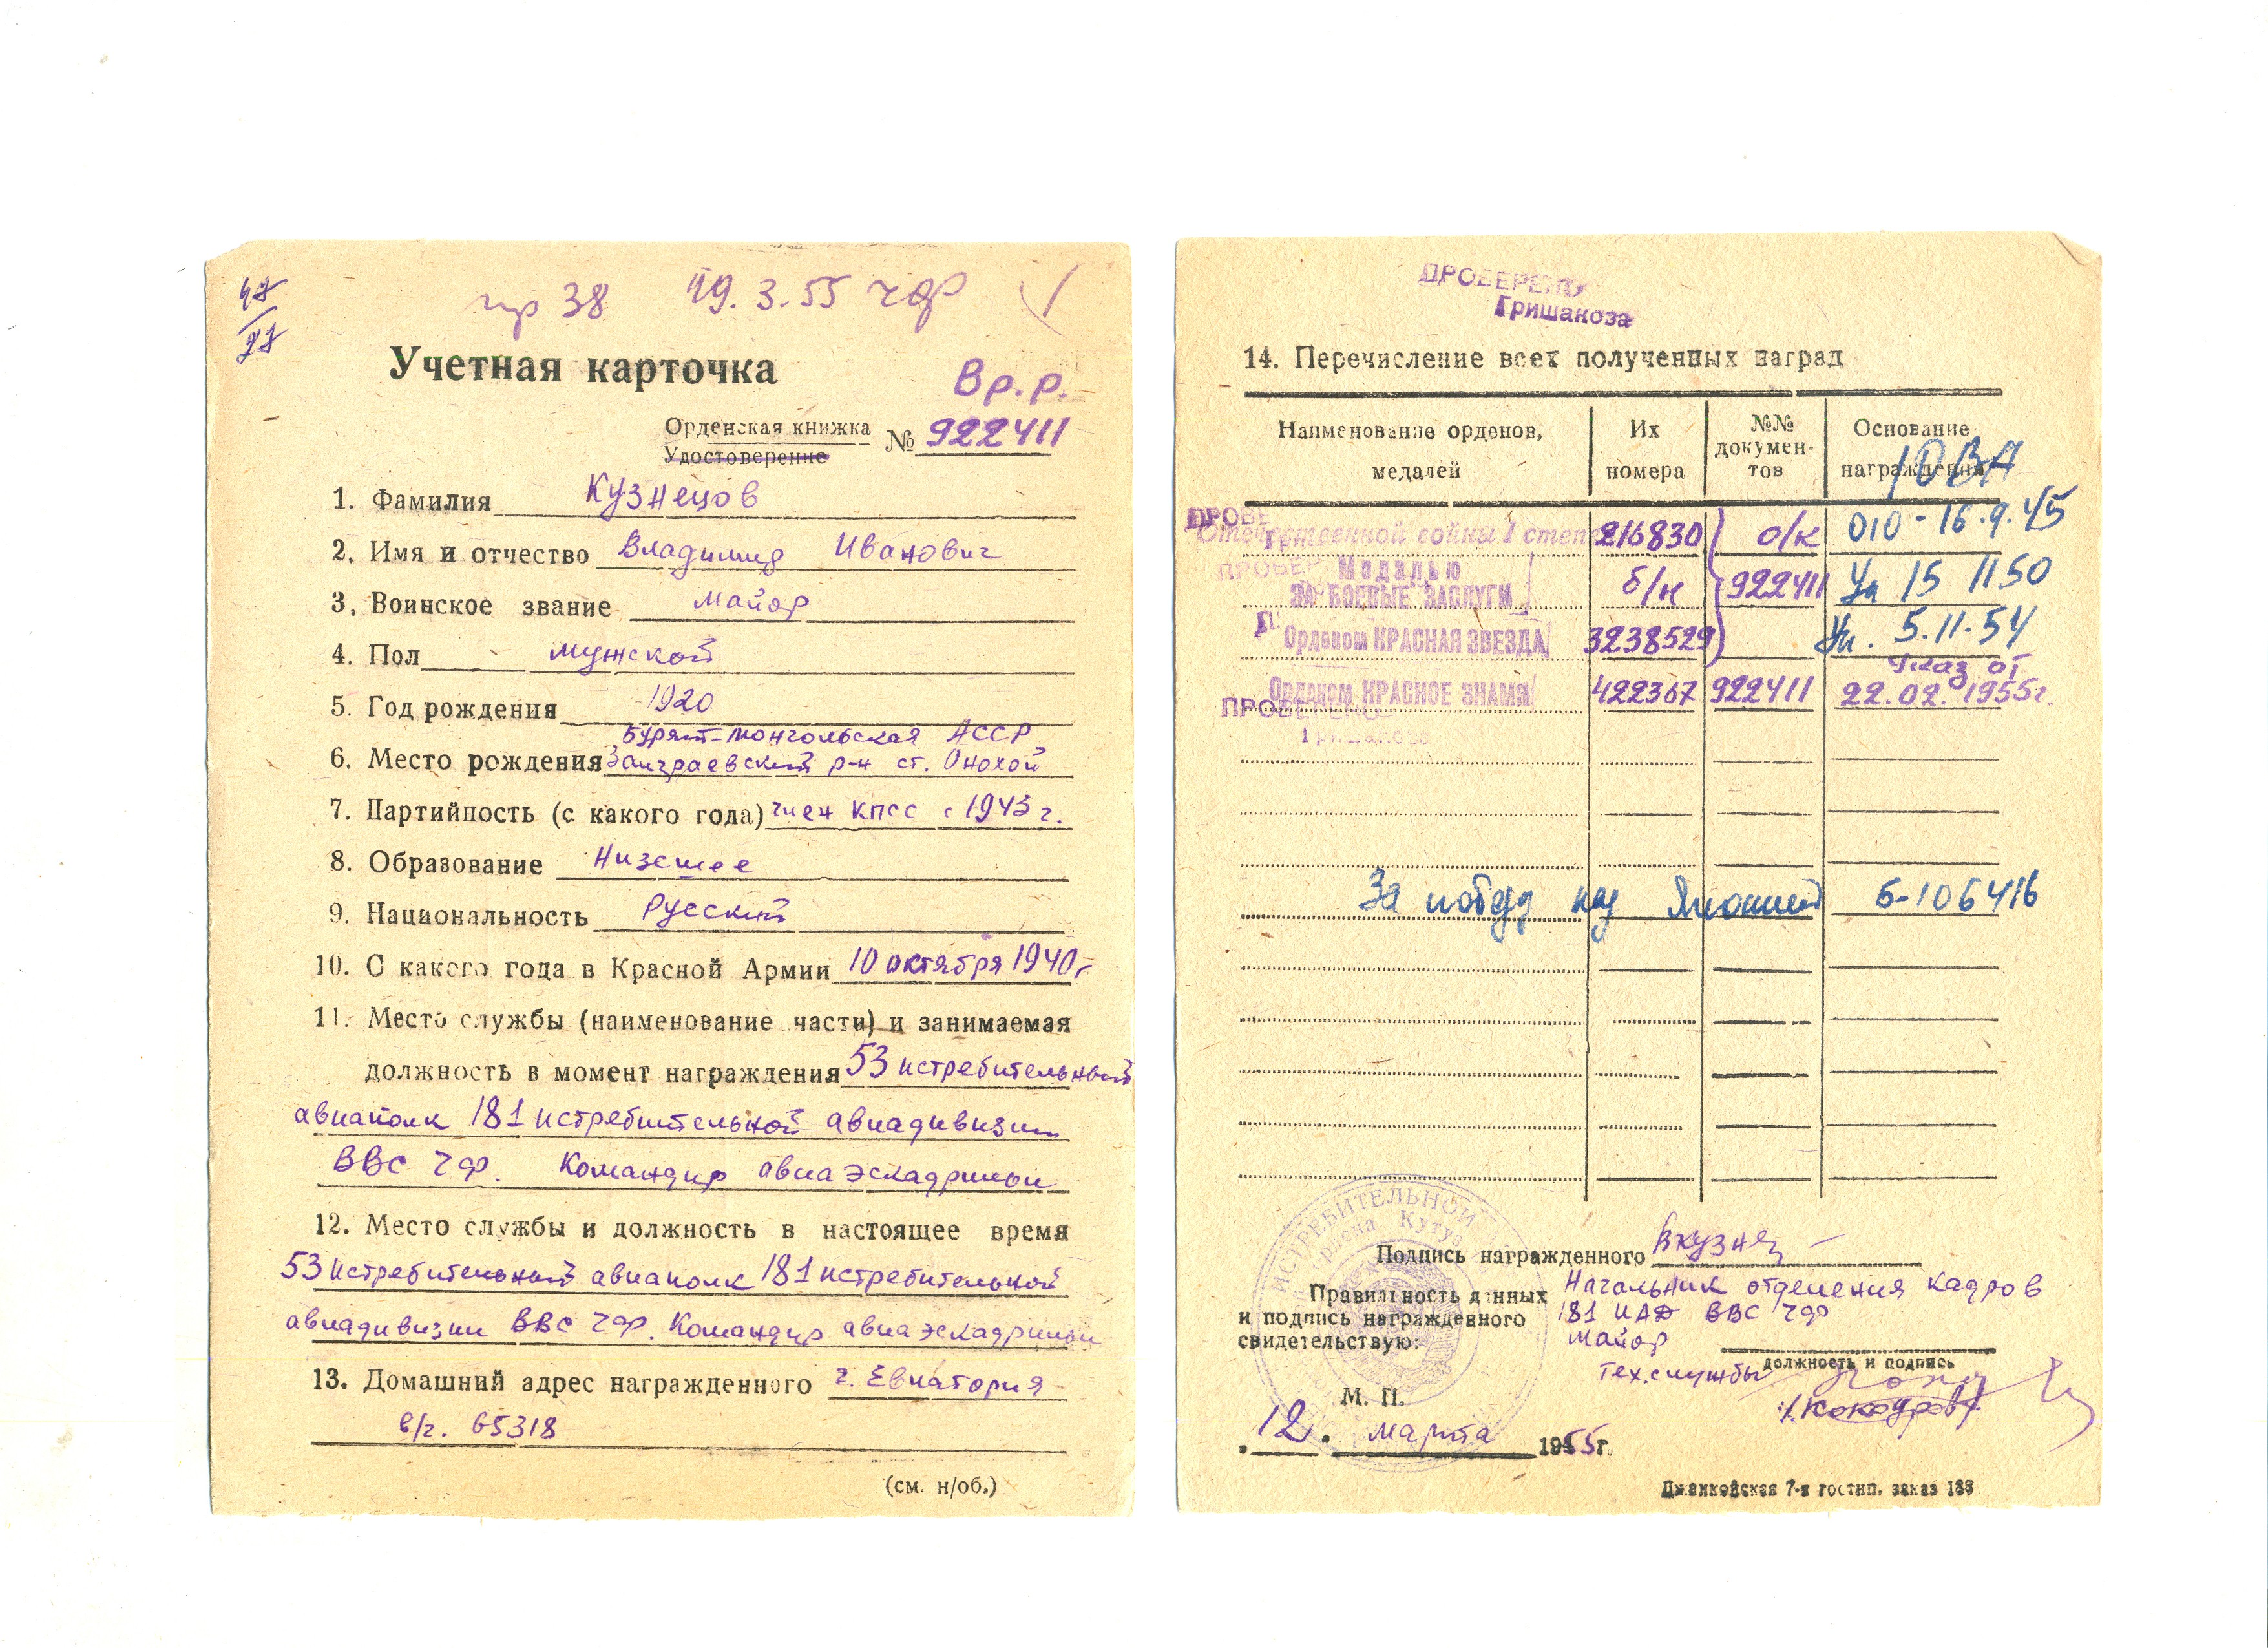 47
27
пр 38 19.3.55 чф
Учетная карточка
Вр.р.
Орденская книжка
Удостоверение
№ 922411
1. Фамилия Кузнецов
2. Имя и отчество Владимир Иванович
3. Воинское звание майор
4. Пол мужской
5. Год рождения 1920
Бурят-Монгольская АССР
6. Место рождения Заиграевский р-н ст. Онохой
7. Партийность (с какого года) член КПСС с 1943 г.
8. Образование Низшее
9. Национальность Русский
10. С какого года в Красной Армии 10 октября 1940 г
11. Место службы (наименование части) и занимаемая
должность в момент награждения 53 истребительный
авиаполк 181 истребительной авиадивизии
ВВС ЧФ. Командир авиаэскадрильи
12. Место службы и должность в настоящее время
53 истребительный авиаполк 181 истребительной
авиадивизии ВВС ЧФ. Командир авиаэскадрильи
13. Домашний адрес награжденного г. Евпатория
в/ч. 65318
(см. н/об.)
ПРОВЕРЕНО
Гришакова
14. Перечисление всех полученных наград
Наименование орденов,
медалей
Их
номера
№№
докумен-
тов
Основание
награждения
10 ВА
ПРОВЕ
Отечественной войны 1 степ 216830 о/к 010-16.9.45
ПРОВЕР
Медалью
ЗА БОЕВЫЕ ЗАСЛУГИ б/н 922411 Ук 15 11 50
П
Орденом КРАСНАЯ ЗВЕЗДА 3238529 Ук. 5.11.54
Указ от
Орденом КРАСНОЕ ЗНАМЯ 422367 922411 22.02.1955г.
ПРОВЕРЕНО
Гришакова
За победу над Японией Б-106416
ИСТРЕБИТЕЛЬНОЙ
ордена Кутуз
Подпись награжденного ВКузнец
Правильность данных
и подпись награжденного
свидетельствую:
Начальник отделения кадров
181 ИАД ВВС ЧФ
майор
тех.службы
должность и подпись
М. П.
12. марта 1955г.
Джанкойская 7-я гостип. заказ 188